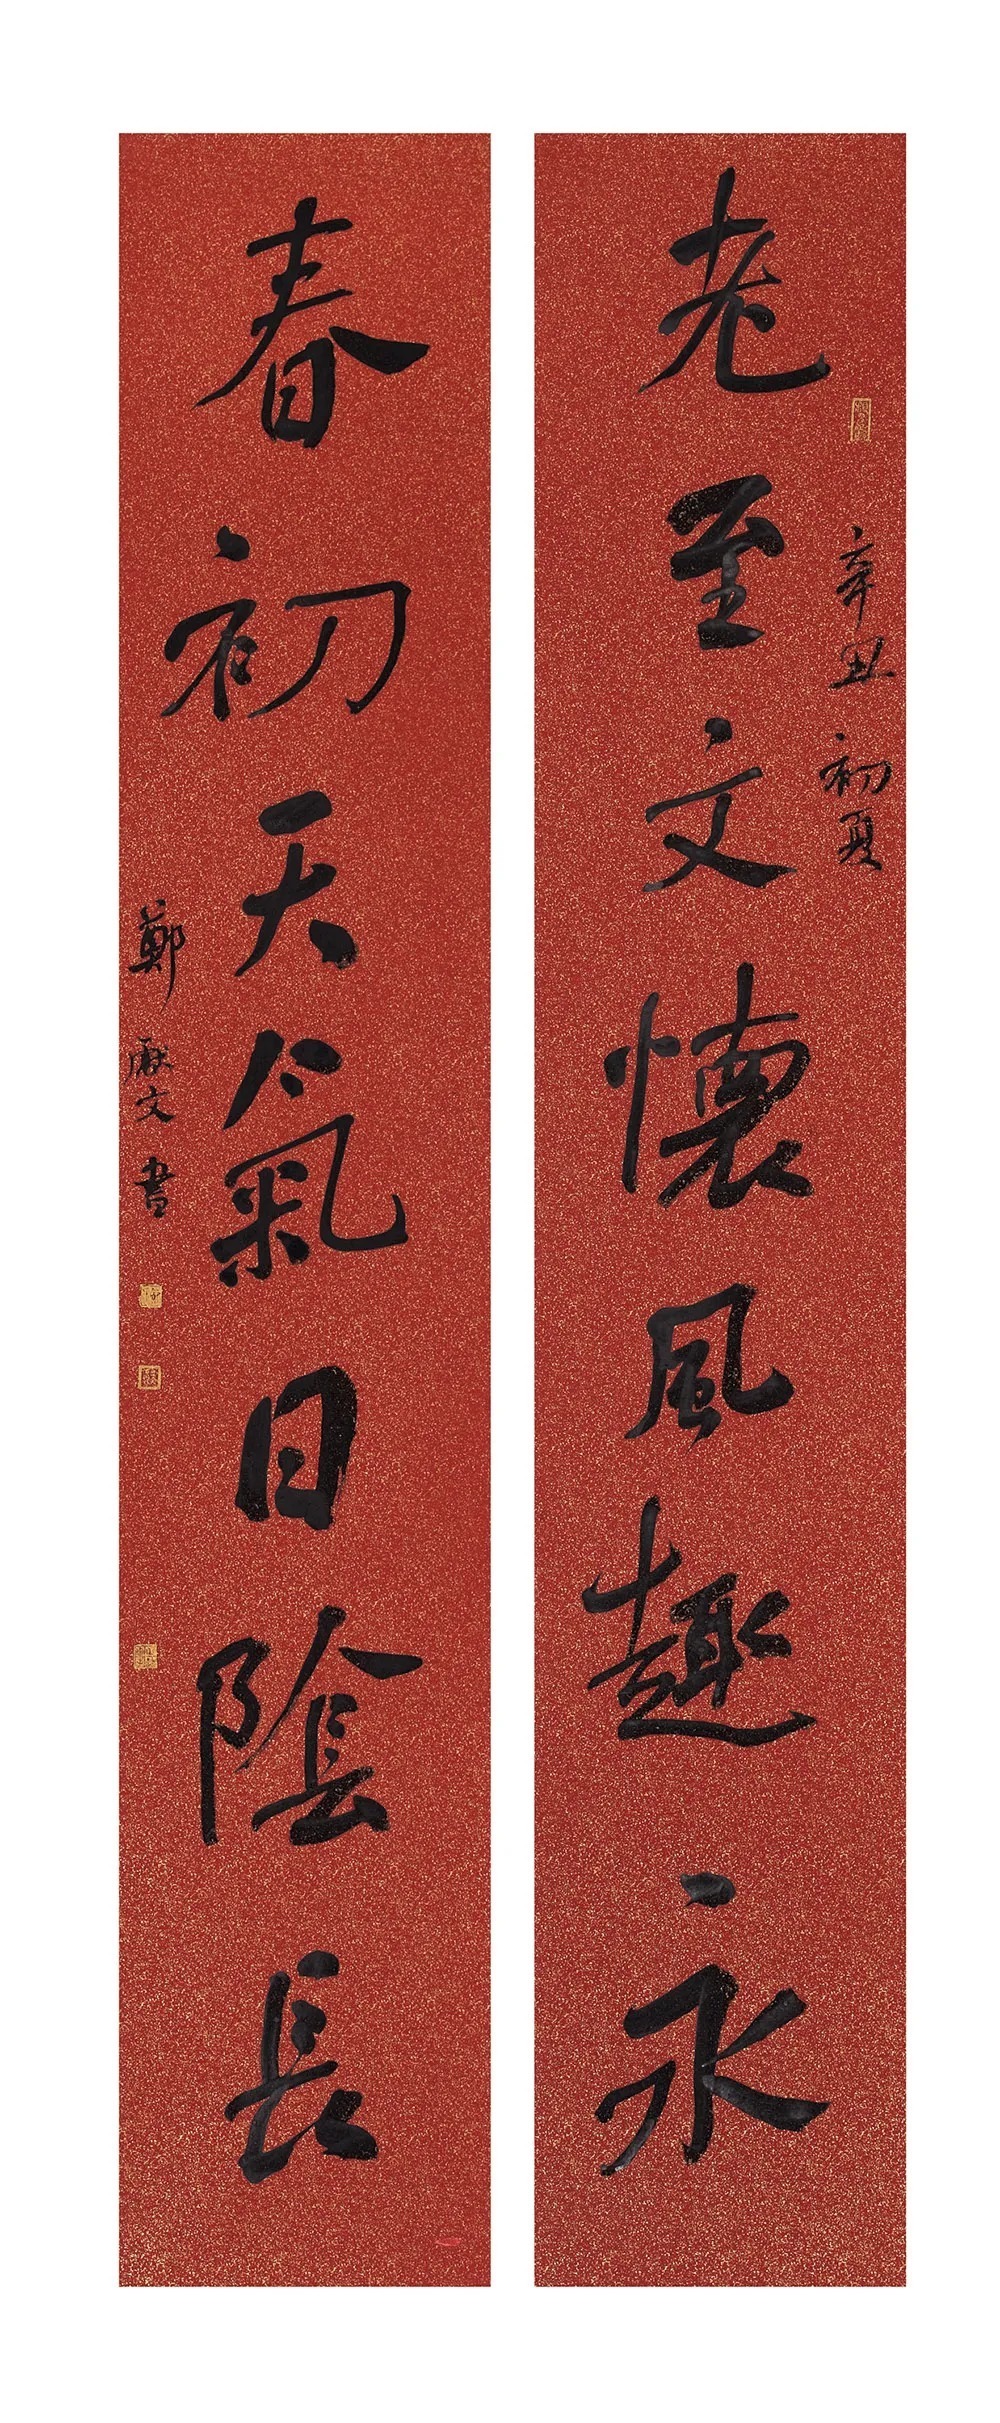 老至文懷風趣永
辛丑初夏
春初天氣日陰長
鄭厥文書